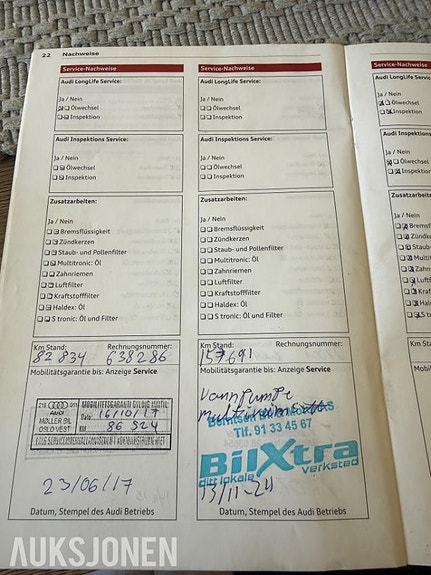 22 Nachweise
Service-Nachweise
Audi LongLife Service:
Ja / Nein
Ölwechsel
Inspektion
Audi Inspektions Service:
Ja / Nein
Ölwechsel
Inspektion
Zusatzarbeiten:
Ja / Nein
Bremsflüssigkeit
Zündkerzen
Staub- und Pollenfilter
Multitronic: Öl
Zahnriemen
Luftfilter
Kraftstofffilter
Haldex: Öl
S tronic: Öl und Filter
Km Stand: Rechnungsnummer:
82834 638286
Mobilitätsgarantie bis: Anzeige Service
AUDI
MØLLER BIL
OSLO VEST
MOBILITETSGARANTI GYLDIG INNTIL
Dato 16/10/17
KM 86 524
23/06/17
Datum, Stempel des Audi Betriebs
Service-Nachweise
Audi LongLife Service:
Ja / Nein
Ölwechsel
Inspektion
Audi Inspektions Service:
Ja / Nein
Ölwechsel
Inspektion
Zusatzarbeiten:
Ja / Nein
Bremsflüssigkeit
Zündkerzen
Staub- und Pollenfilter
Multitronic: Öl
Zahnriemen
Luftfilter
Kraftstofffilter
Haldex: Öl
S tronic: Öl und Filter
Km Stand: Rechnungsnummer:
157691
Mobilitätsgarantie bis: Anzeige Service
Vannpumpe
Tlf. 91 33 45 67
BilXtra
ditt lokale verksted
13/11-24
Datum, Stempel des Audi Betriebs
Service-Nachweise
Audi LongLife Service:
Ja / Nein
Ölwechsel
Inspektion
Audi Inspektions
Ja / Nein
Ölwechsel
Inspektion
Zusatzarbeiten:
Ja / Nein
Km Stand:
Mobilitätsgarant
AUKSJONEN